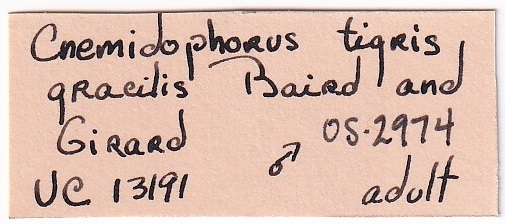 Cnemidophorus tigris
gracilis Baird and
Girard OS-2974
UC 13191 ♂ adult